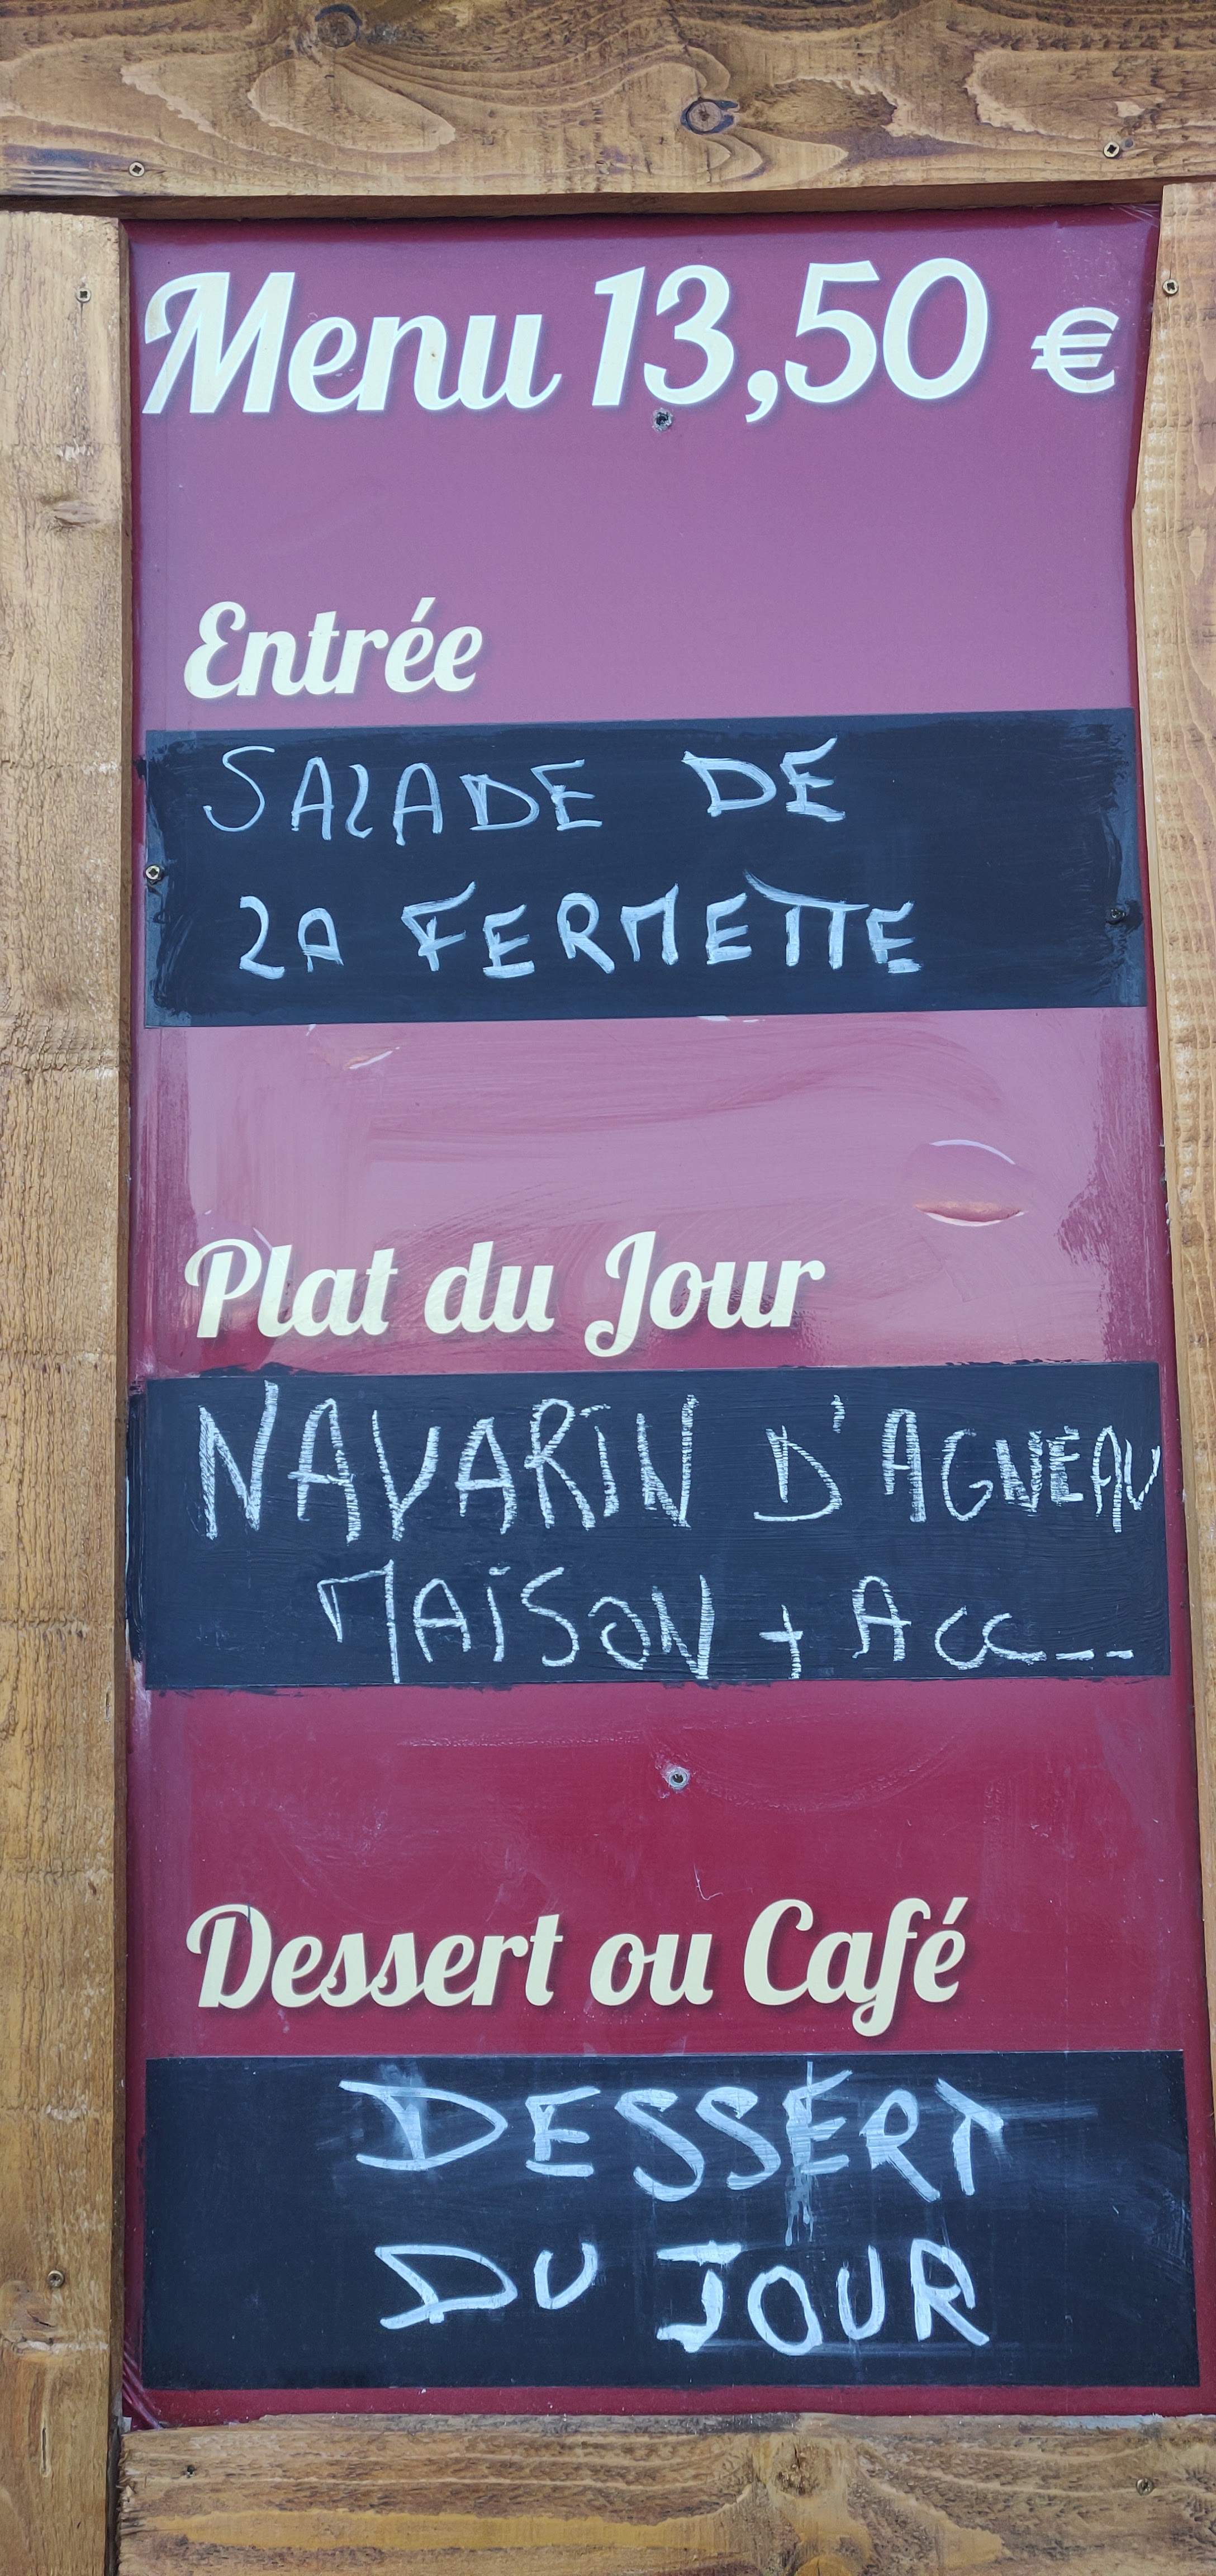 Menu 13,50 €
Entrée
SALADE DE
LA FERMETTE
Plat du Jour
NAVARIN D'AGNEAU
MAISON + ACC...
Dessert ou Café
DESSERT
DU JOUR